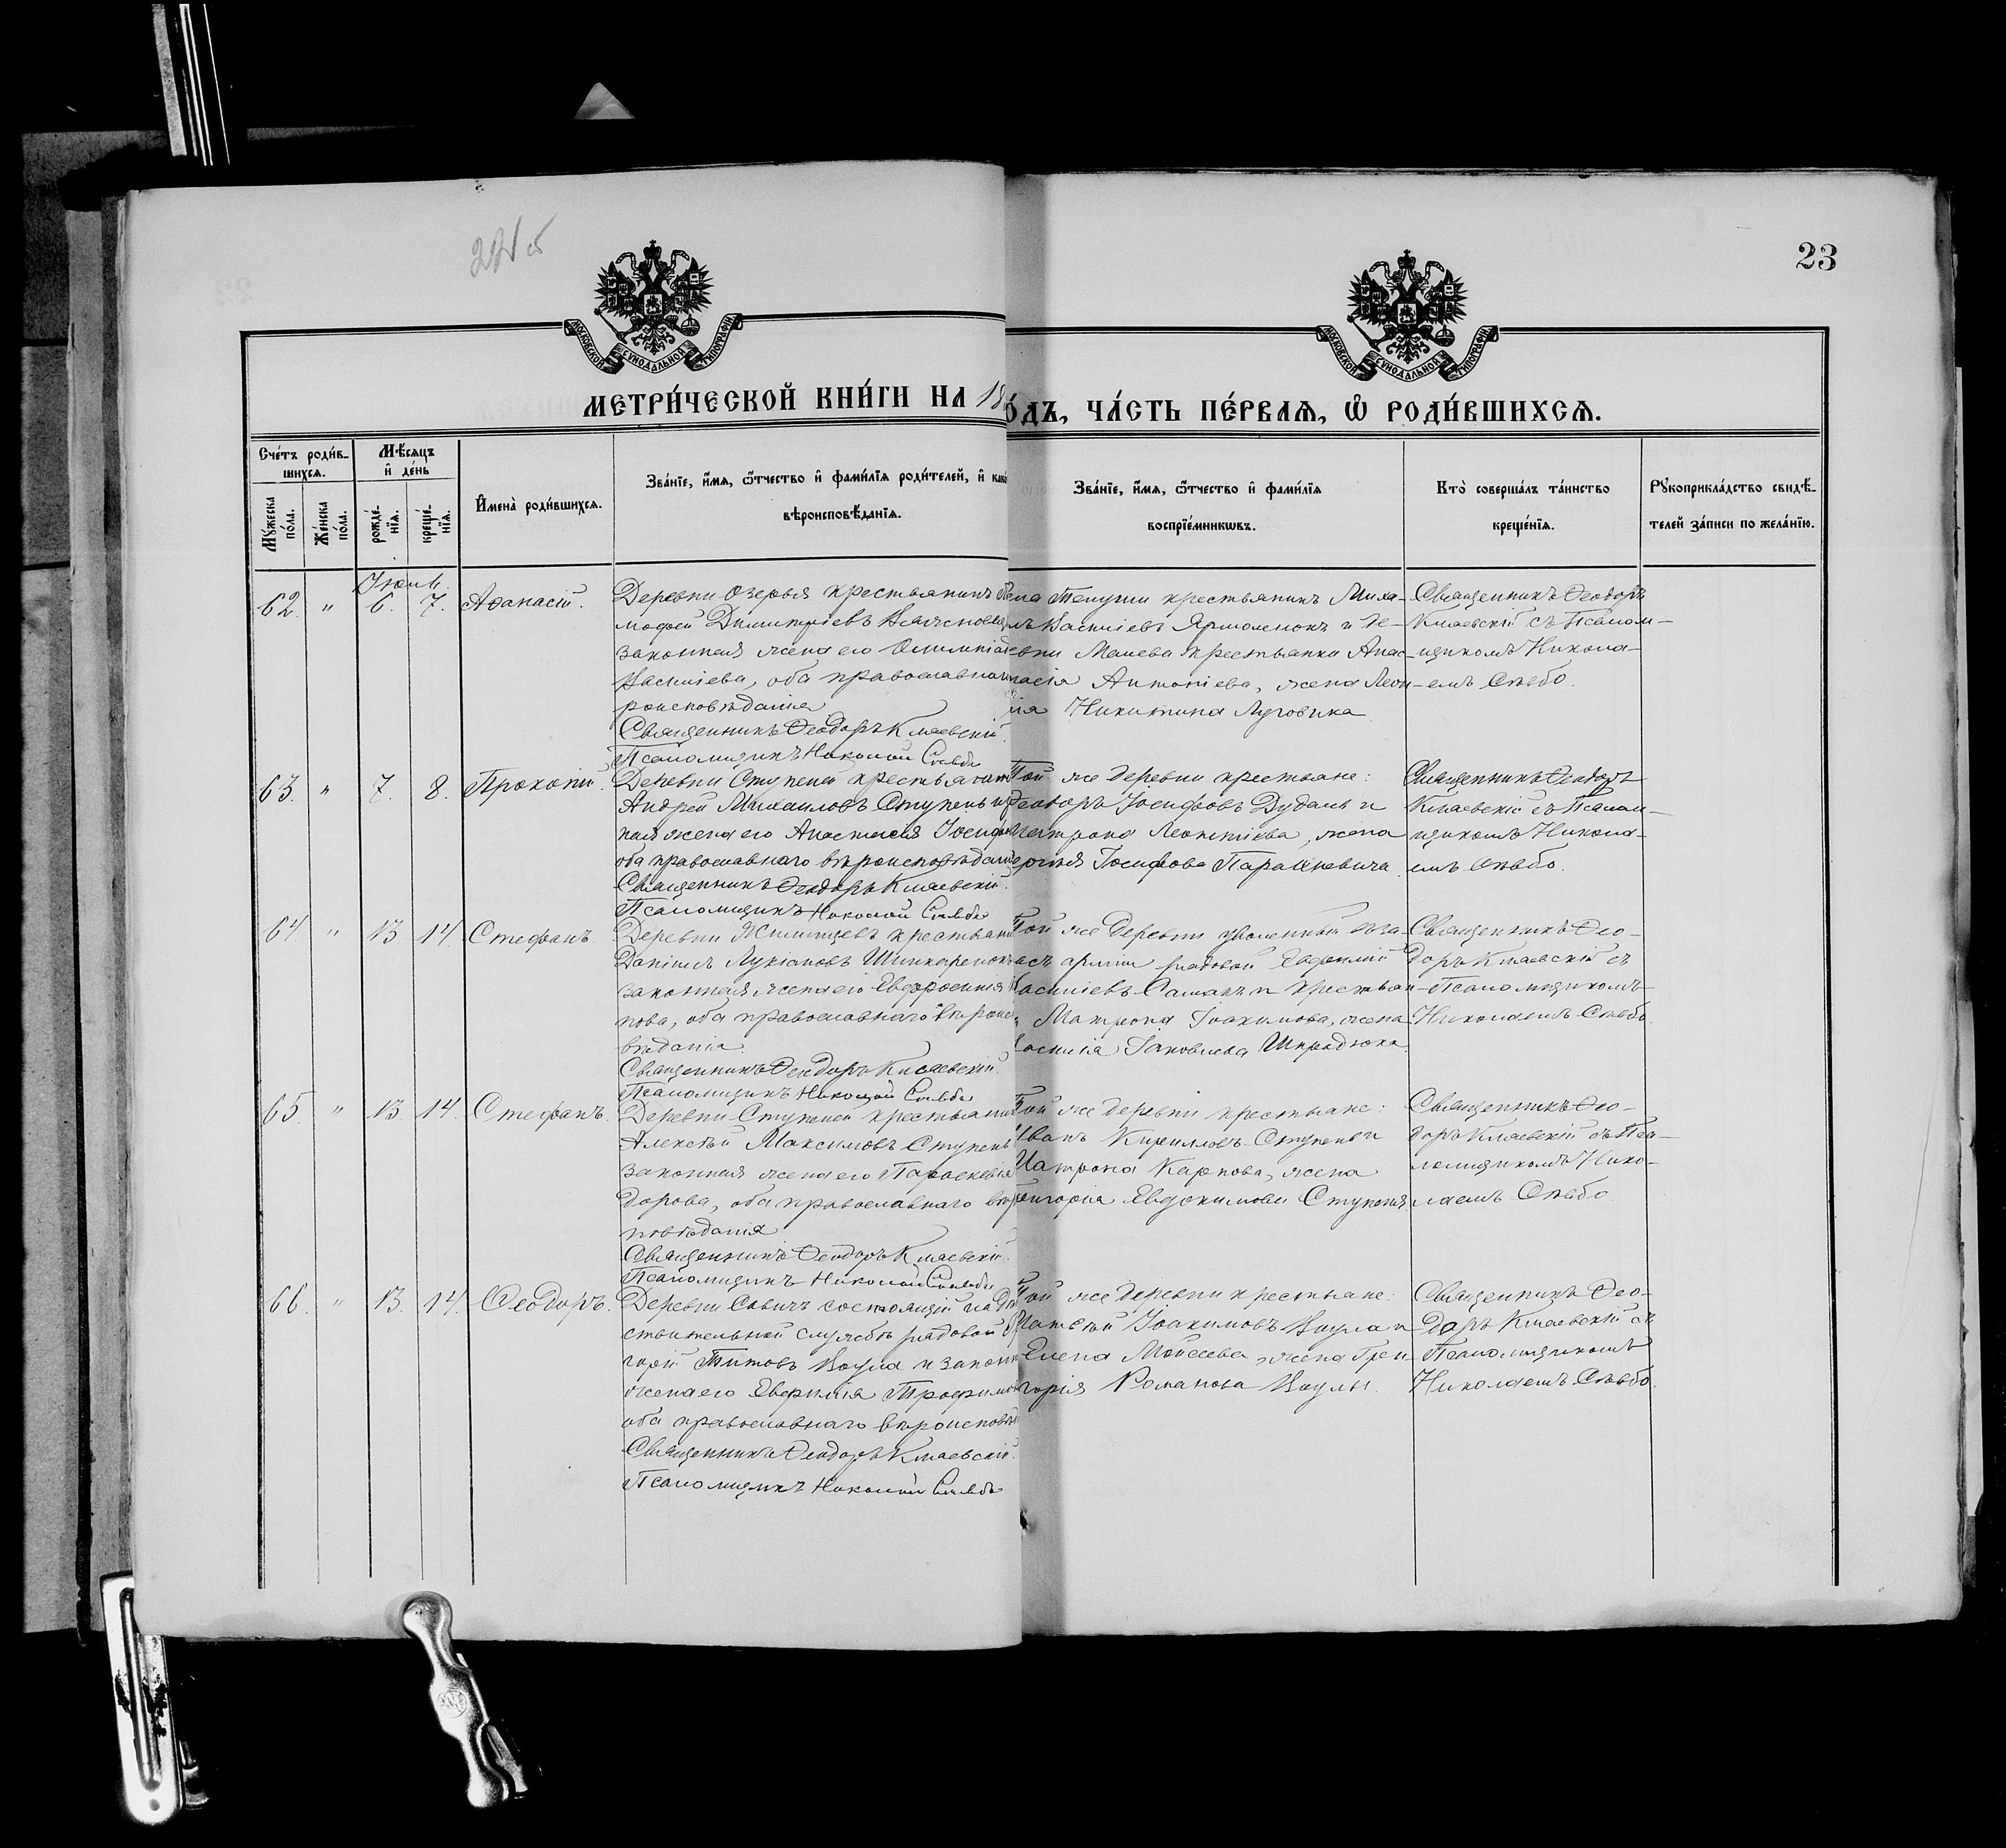 23
МОСКОВСКОЙ СѴНОДАЛЬНОЙ ТИПОГРАФІИ
МОСКОВСКОЙ СѴНОДАЛЬНОЙ ТИПОГРАФІИ
МЕТРИ́ЧЕСКОЙ КНИ́ГИ НА 18
О́ДЪ, ЧА́СТЬ ПЕ́РВАѦ, Ѡ҆ РОДИ́ВШИХСѦ.
Сче́тъ роди́в-
шихсѧ.
Мѣ́сѧцъ
и҆ де́нь
Мꙋ́жеска
по́ла.
Же́нска
по́ла.
рожде́-
нїѧ.
креще́-
нїѧ.
И҆мена̀ роди́вшихсѧ.
Зва́нїе, и҆́мѧ, ѻ҆́тчество и҆ фами́лїѧ роди́телей, и҆ како
вѣроисповѣ́данїѧ.
Зва́нїе, и҆́мѧ, ѻ҆́тчество и҆ фами́лїѧ
воспрїе́мникѡвъ.
Кто̀ соверша́лъ та́инство
креще́нїѧ.
Рꙋкоприкла́дство свидѣ́-
телей за́писи по жела́нїю.
62 " 6. 7. Аѳанасій.
Деревни Озерья крестьянинъ
мофей Димитріевъ
законная жена его Олимпіад
Василіева, оба православна
роисповѣданія
Священникъ Ѳеодоръ Кмаевскій.
Псаломщикъ Николай Сльбо
крестьянинъ Миха-
лъ Василіевъ Ярмоленокъ и де-
евни крестьянка Анас-
тасія Антоніева, жена Леон-
ія Никитина Луговика
Священникъ Ѳеодоръ
Кмаевскій съ Псалом-
щикомъ Никола-
емъ Сльбо.
63. " 7. 8. Прокопій.
Деревни Ступеней крестьянин
Андрей Михаиловъ Ступень и
ная жена его Анастасія Іосиф
оба православнаго вѣроисповѣдані
Священникъ Ѳеодоръ Кмаевскій.
Псаломщикъ Николай Сльбо
Той же деревни крестьяне:
Ѳеодоръ Іосифовъ Дудаль и
Матрона Леонтіева, жена
Іосифова Параневича.
Священникъ Ѳеодоръ
Кмаевскій съ Псалом-
щикомъ Никола-
емъ Сльбо.
64. " 13 14. Стефанъ.
Деревни крестьяни
Даніилъ Лукіановъ Шинкаренокъ
законная жена его Евфросинія
нова, оба православнаго вѣроис
вѣданія.
Священникъ Ѳеодоръ Кмаевскій.
Псаломщикъ Николай Сльбо
Той же деревни уволенный въ за-
асъ арміи рядовой Евфимій
Василіевъ и крестьян-
Матрона Іоакимова, жена
Василія Іаковлева Шкрадюка.
Священникъ Ѳео-
доръ Кмаевскій съ
Псаломщикомъ
Николаемъ Сльбо.
65. " 13 14. Стефанъ.
Деревни Ступеней крестьянин
Алексѣй Максимовъ Ступень
законная жена его Параскевія
дорова, оба православнаго вѣр
повѣданія
Священникъ Ѳеодоръ Кмаевскій.
Псаломщикъ Николай Сльбо
Той же деревни крестьяне:
Иванъ Кирилловъ Ступень и
Матрона Карпова, жена
Григорія Евдокимова Ступеня
Священникъ Ѳео-
доръ Кмаевскій съ Пса-
ломщикомъ Нико-
лаемъ Сльбо
66. " 13. 14. Ѳеодоръ.
Деревни Савичъ состоящій на Дѣ
ствительной службѣ рядовой
горій Титовъ Ваула и законн
жена его Евфимія Трофимо
оба православнаго вѣроисповѣ
Священникъ Ѳеодоръ Кмаевскій.
Псаломщикъ Николай Сльбо
Той же деревни крестьяне:
Матвѣй Іоакимовъ Ваула и
Елена Моисеева, жена Гри-
горія Романова Ваулы.
Священникъ Ѳео-
доръ Кмаевскій съ
Псаломщикомъ
Николаемъ Сльбо.